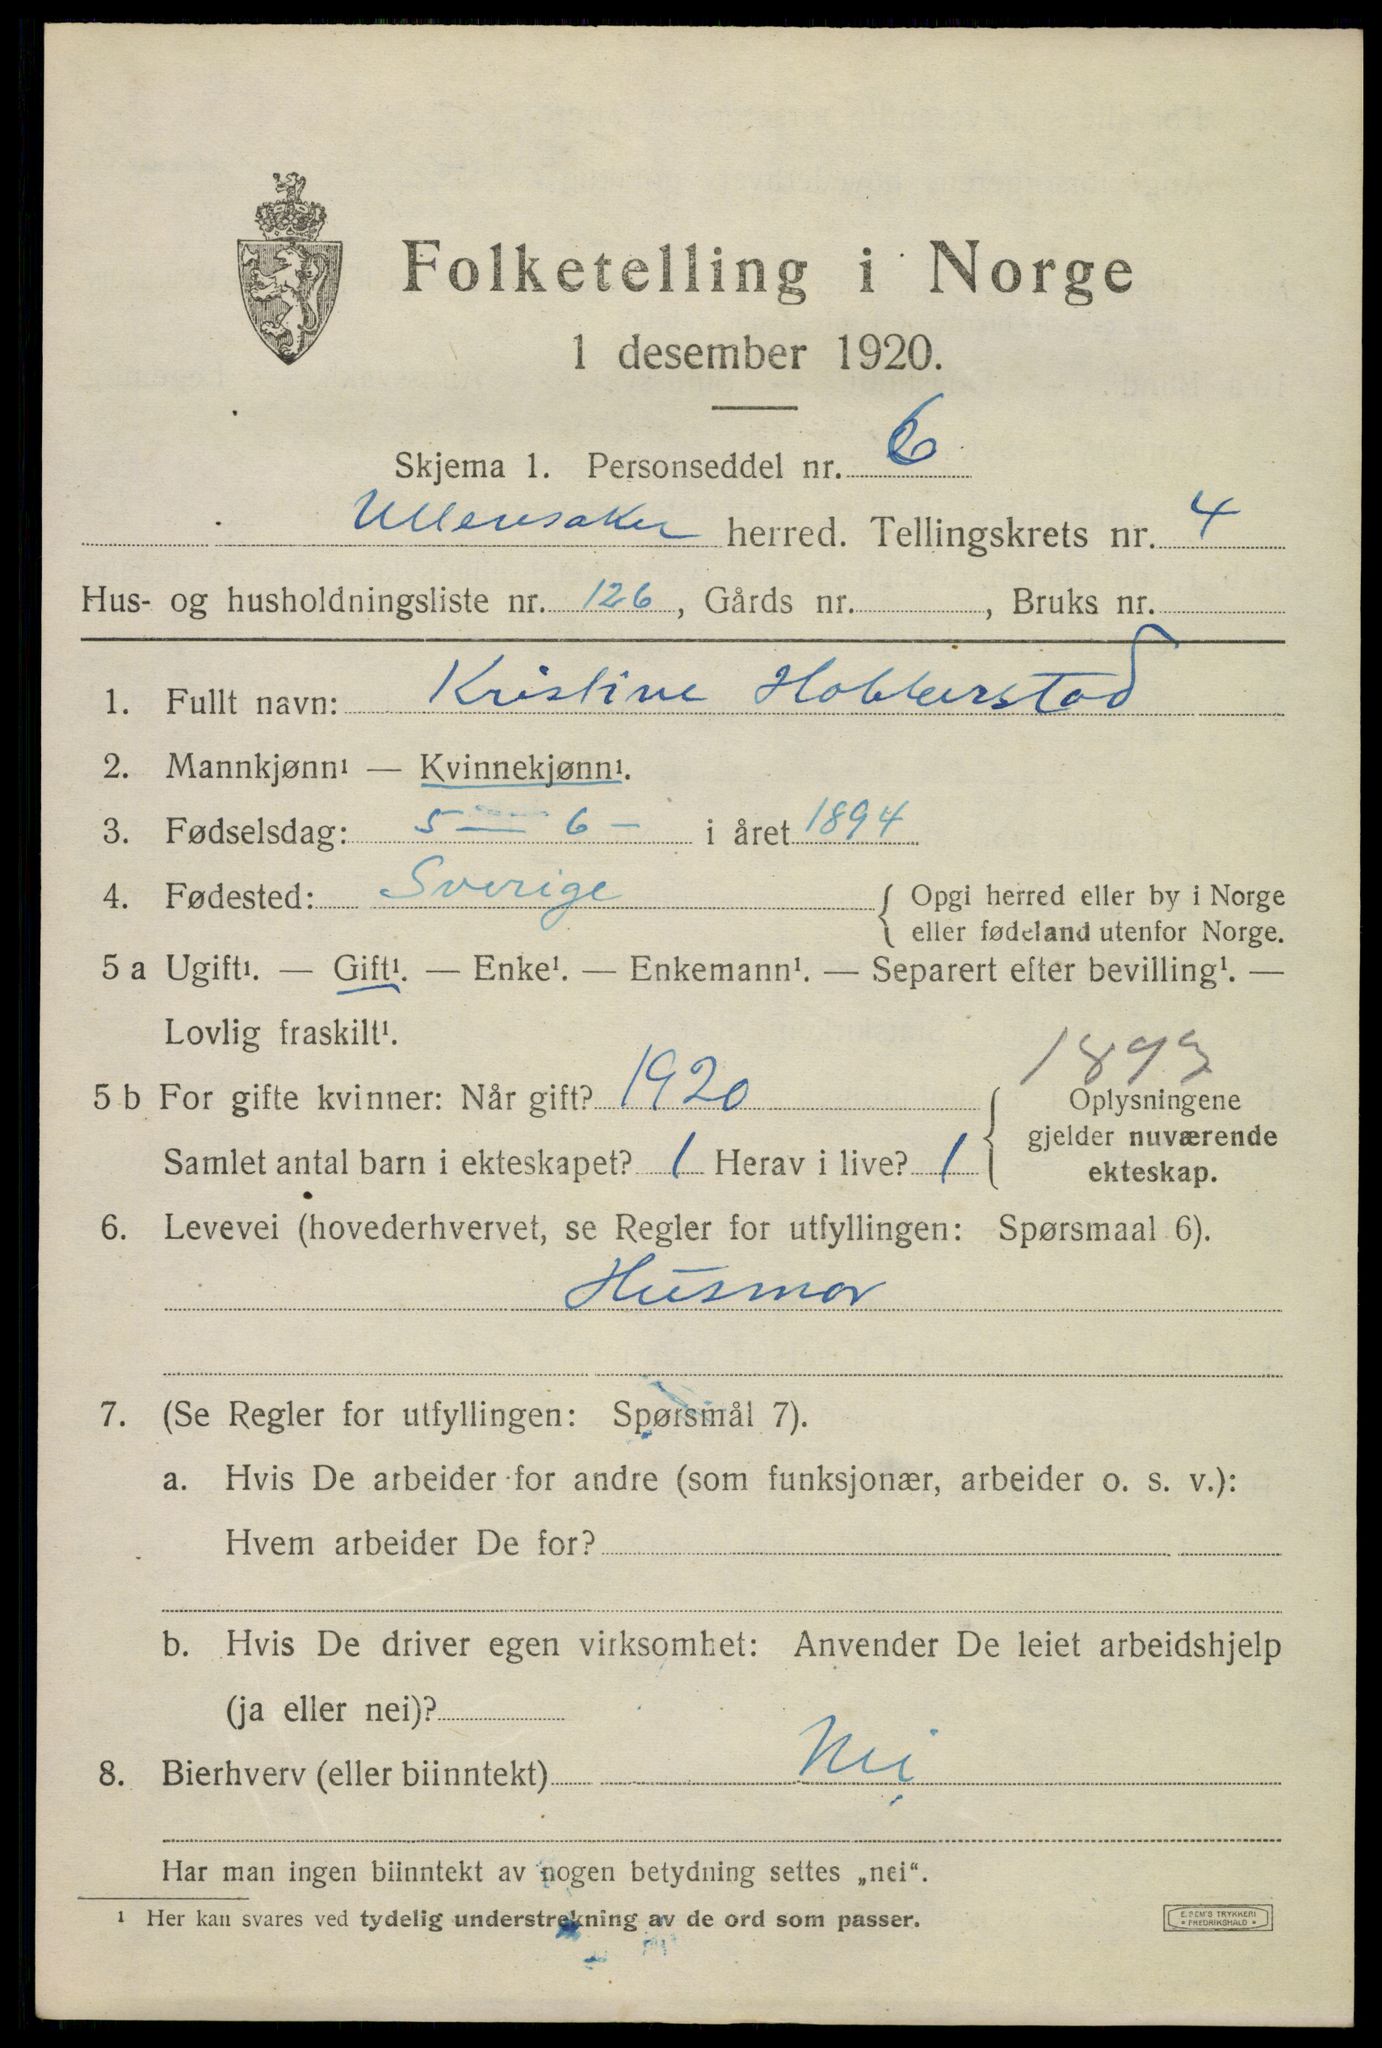 Folketelling i Norge
1 desember 1920.
Skjema 1. Personseddel nr. 6
Ullensaker herred. Tellingskrets nr. 4
Hus- og husholdningsliste nr. 126, Gårds nr. , Bruks nr.
1. Fullt navn: Kristine Holterstad
2. Mannkjønn¹ — Kvinnekjønn¹.
3. Fødselsdag: 5 — 6 – i året 1894
4. Fødested: Sverige { Opgi herred eller by i Norge
eller fødeland utenfor Norge.
5 a Ugift¹. — Gift¹. — Enke¹. — Enkemann¹. — Separert efter bevilling¹. —
Lovlig fraskilt¹.
5 b For gifte kvinner: Når gift? 1920
Samlet antal barn i ekteskapet? 1 Herav i live? 1
Oplysningene
gjelder nuværende
ekteskap.
6. Levevei (hovederhvervet, se Regler for utfyllingen: Spørsmaal 6).
Husmor
7. (Se Regler for utfyllingen: Spørsmål 7).
a. Hvis De arbeider for andre (som funksjonær, arbeider o. s. v.):
Hvem arbeider De for?
b. Hvis De driver egen virksomhet: Anvender De leiet arbeidshjelp
(ja eller nei)?
8. Bierhverv (eller biinntekt) Nei
Har man ingen biinntekt av nogen betydning settes „nei“.
¹ Her kan svares ved tydelig understrekning av de ord som passer.
E. SEM'S TRYKKERI
• FREDRIKSHALD •